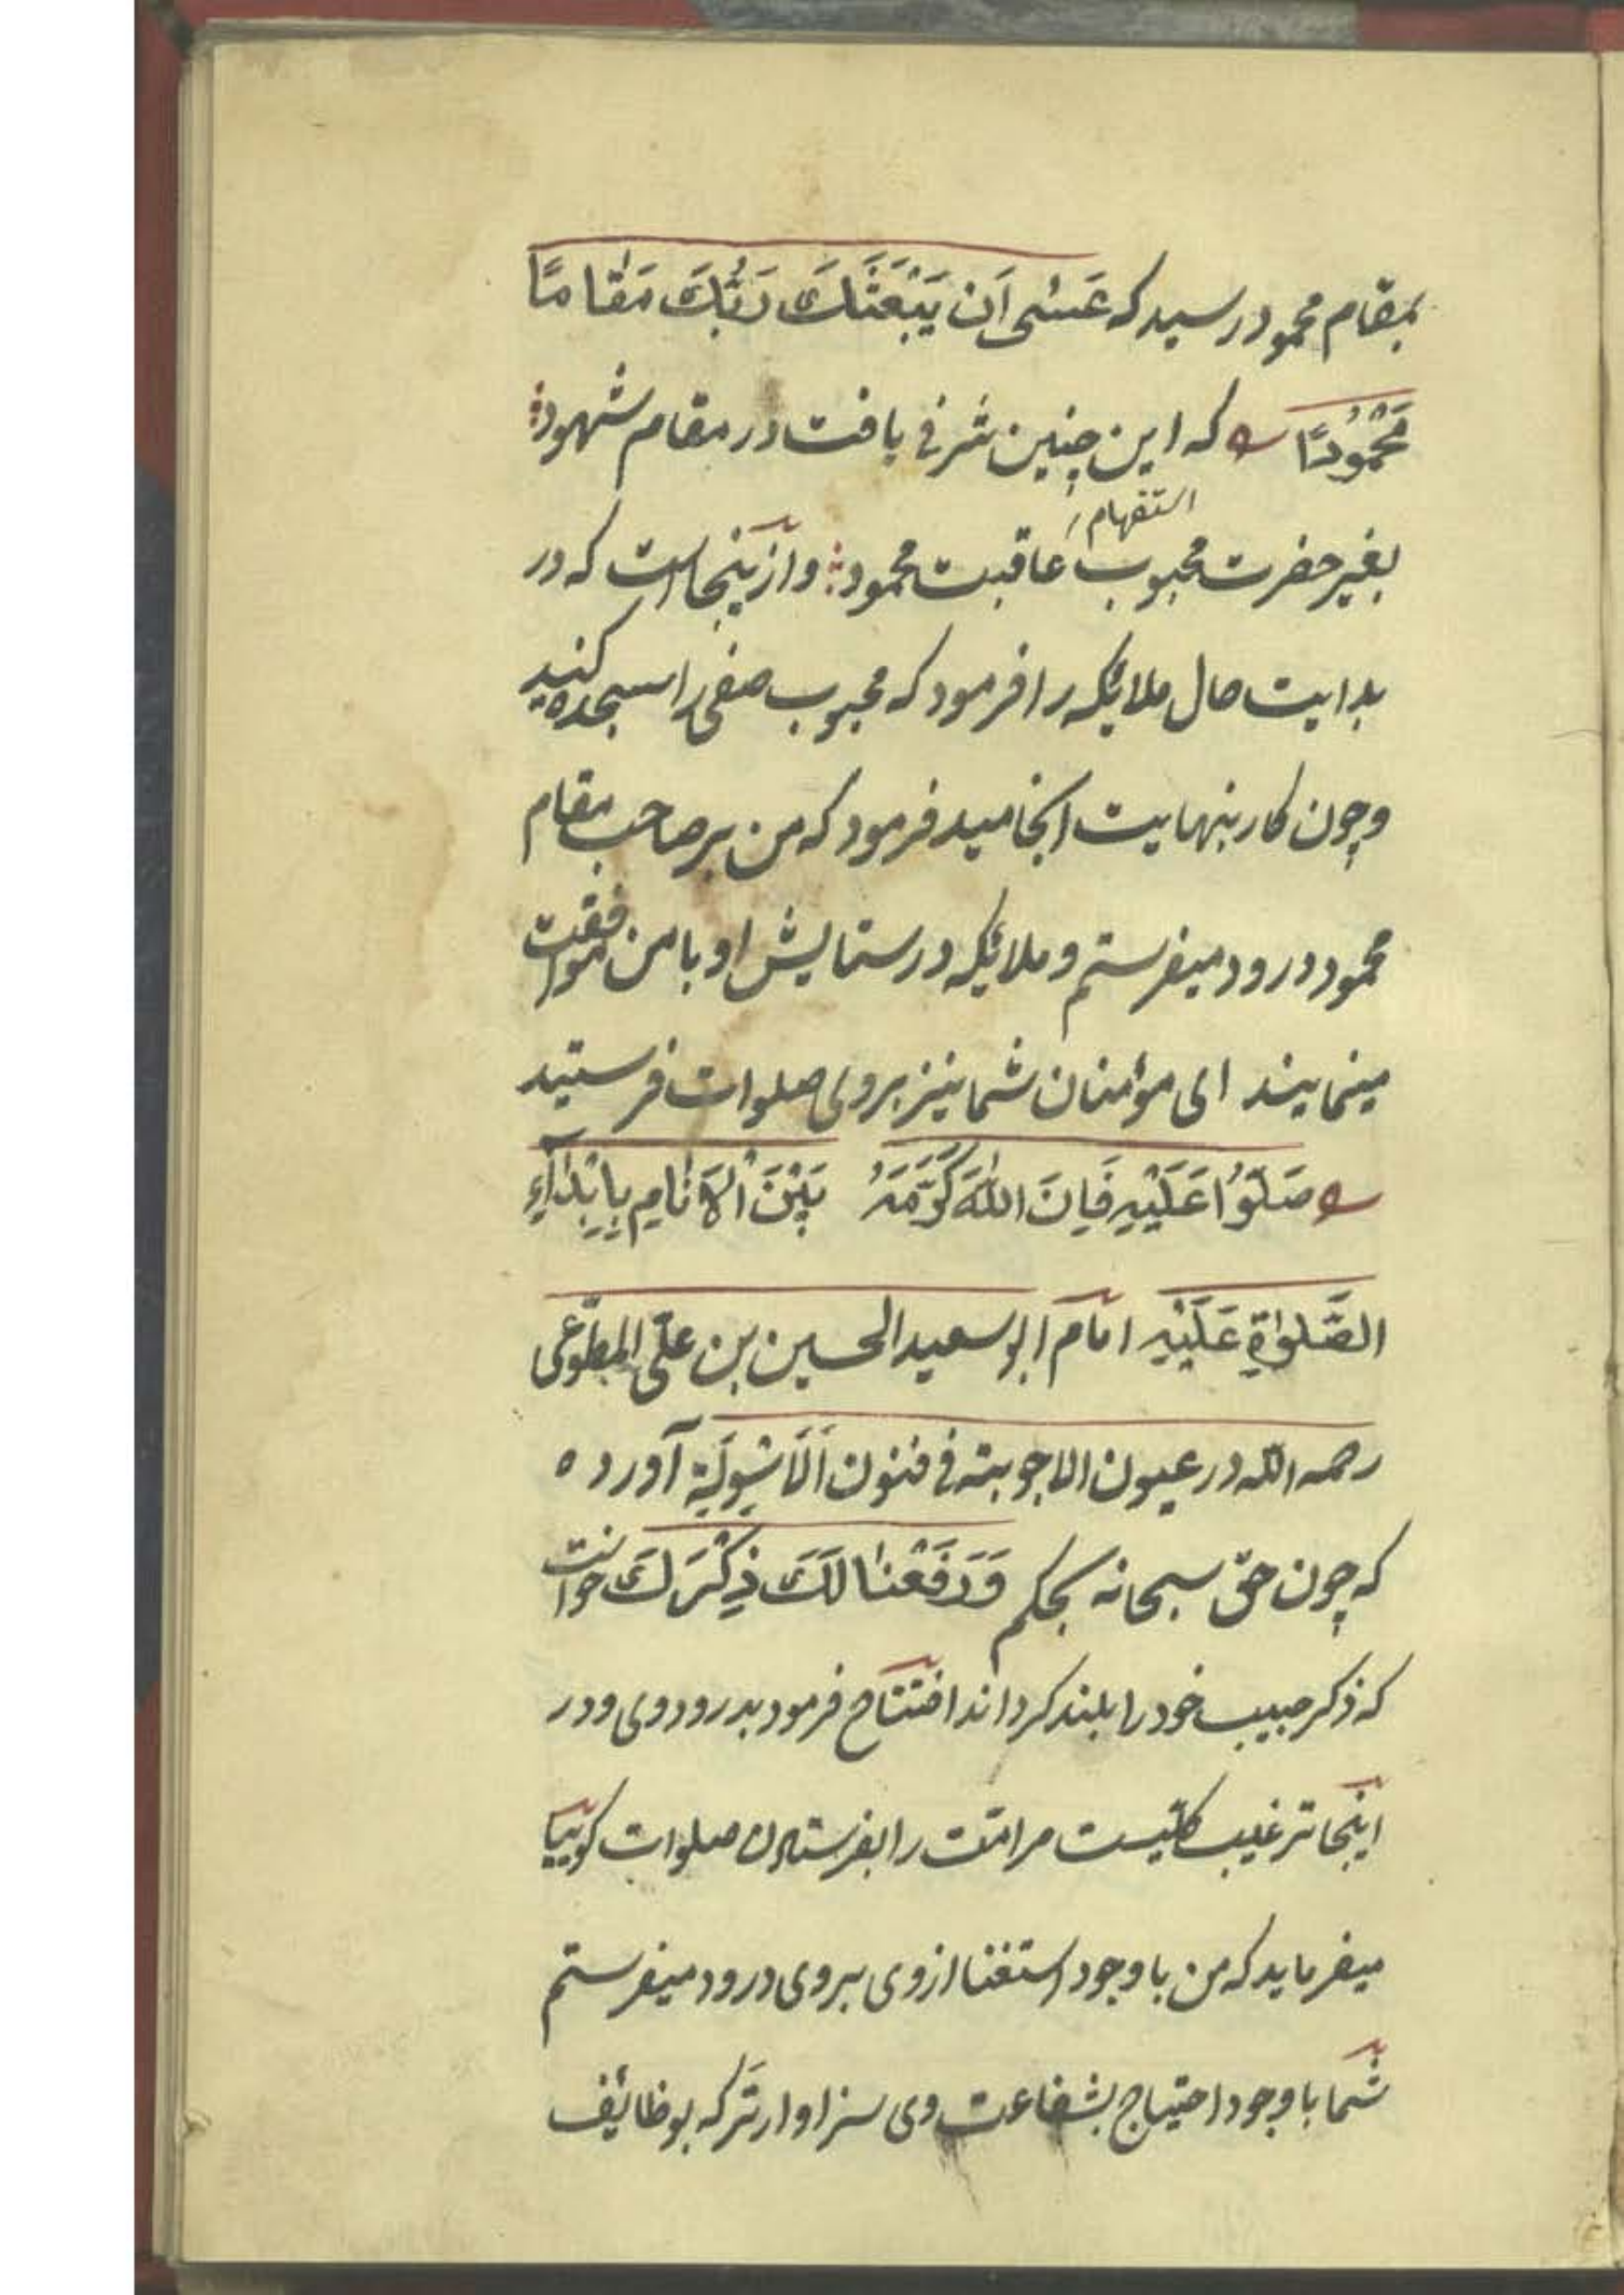 بمقام محمود رسید که عَسٰی اَن یَبْعَثَكَ رَبُّكَ مَقَامًا
مَحْمُودًا که این چنین شرفی یافت در مقام شهود
استفهام
بغیر حضرت محبوب عاقبت محمود وازینجاست که در
بدایت حال ملایکه را فرمود که محبوب صفی را سجده کنید
وچون کار بنهایت انجامید فرمود که من بر صاحب مقام
محمود درود میفرستم و ملائکه در ستایش او با من موافقت
مینمایند ای مؤمنان شما نیز بروی صلوات فرستید
صَلُّوا عَلَیْهِ فَاِنَ اللّٰهَ كَرَّمَهُ بَیْنَ الْاَنَامِ بِاِبْدَآءِ
الصَّلٰوةِ عَلَیْهِ امام ابو سعید الحسین بن علی المطوّعی
رحمه الله در عیون الاجوبته فی فنون الَاسْوِلَةِ آورده
که چون حق سبحانه بحکم وَرَفَعْنَا لَكَ ذِكْرَكَ خواست
که ذکر حبیب خود را بلند کرداند افتتاح فرمود بدرود وی ودر
اینجا ترغیب کلّیست مر امّت را بفرستادن صلوات کوییا
میفرماید که من باوجود استغنا از وی بروی درود میفرستم
شما باوجود احتیاج بشفاعت وی سزاوارتر که بوظائف